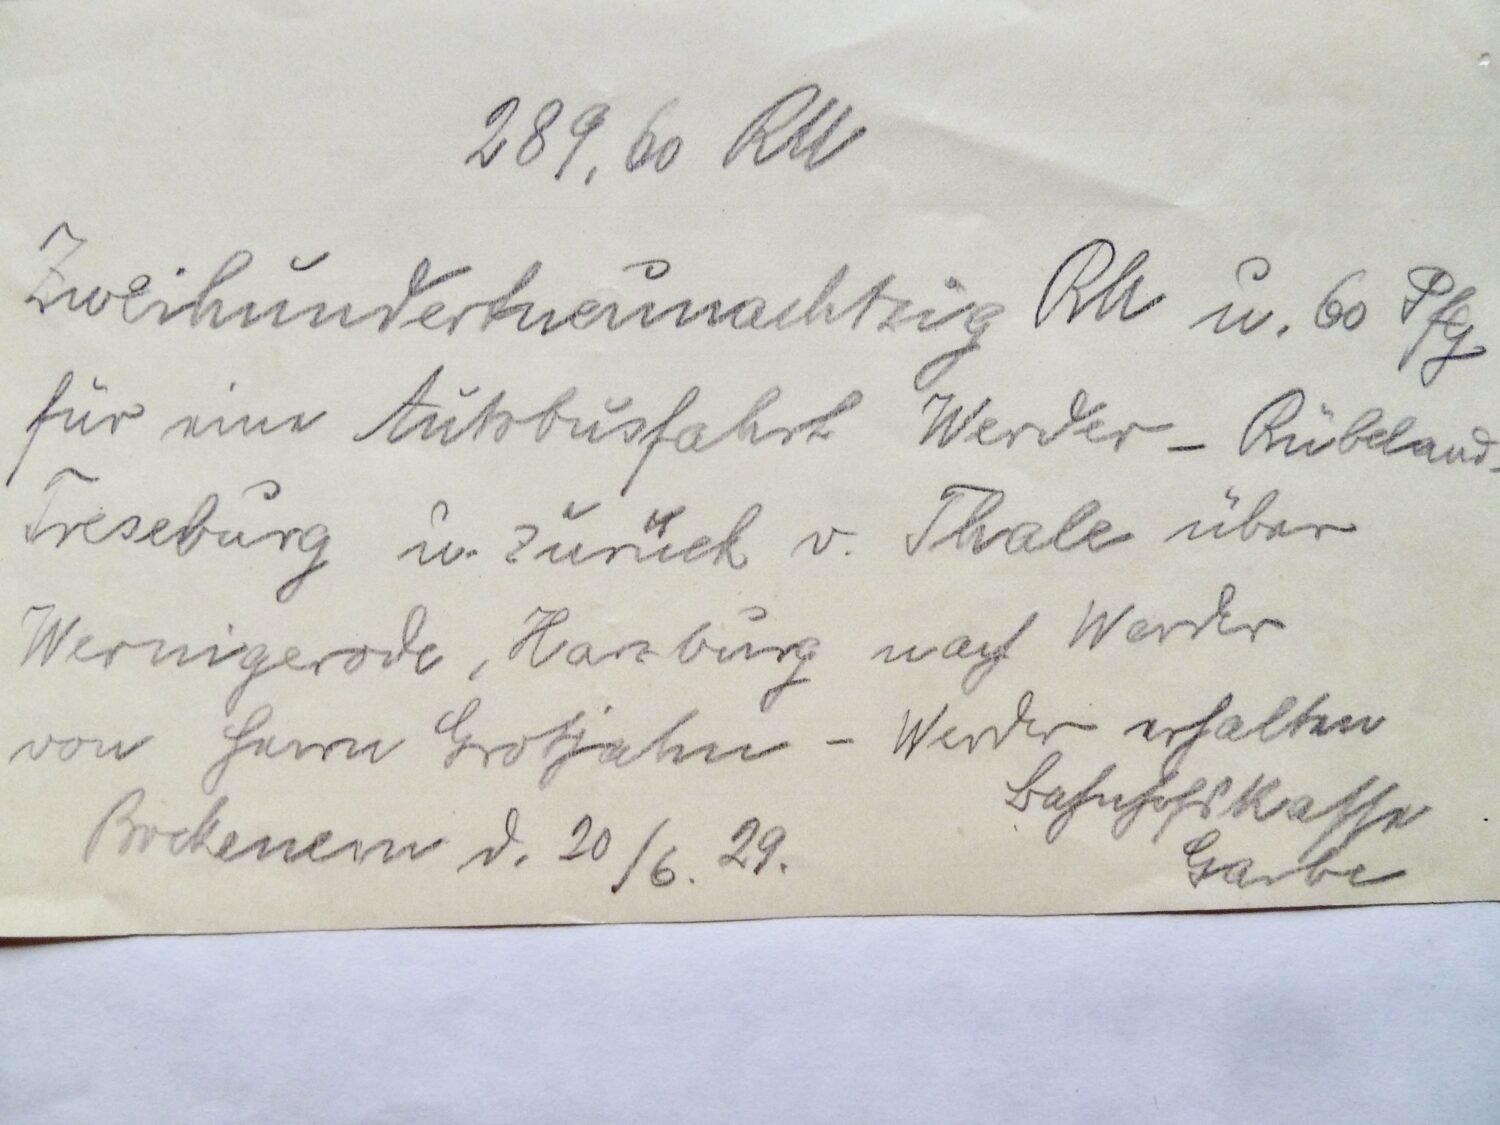 289,60 RM
Zweihundertneunachtzig RM u. 60 Pfg
für eine Autobusfahrt Werder - Rübeland-
Treseburg u. zurück v. Thale über
Wernigerode, Harzburg nach Werder
von Herrn Grotjahn - Werder erhalten
Bahnhofskasse
Bockenem d. 20/6. 29.
Garbe